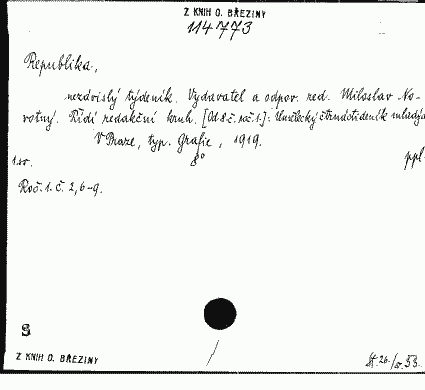 Z KNIH O. BŘEZINY
114773
Republika,
nezávislý týdeník. Vydavatel a odpov. red. Miloslav No-
votný. Řídí redakční kruh. [Od 8.č. roč. 1.]: Umělecký čtrnáctideník mladých
V Praze, typ. Grafie, 1919.
1 sv. 8° ppl.
Roč. 1. č. 2, 6-9.
S
Z KNIH O. BŘEZINY